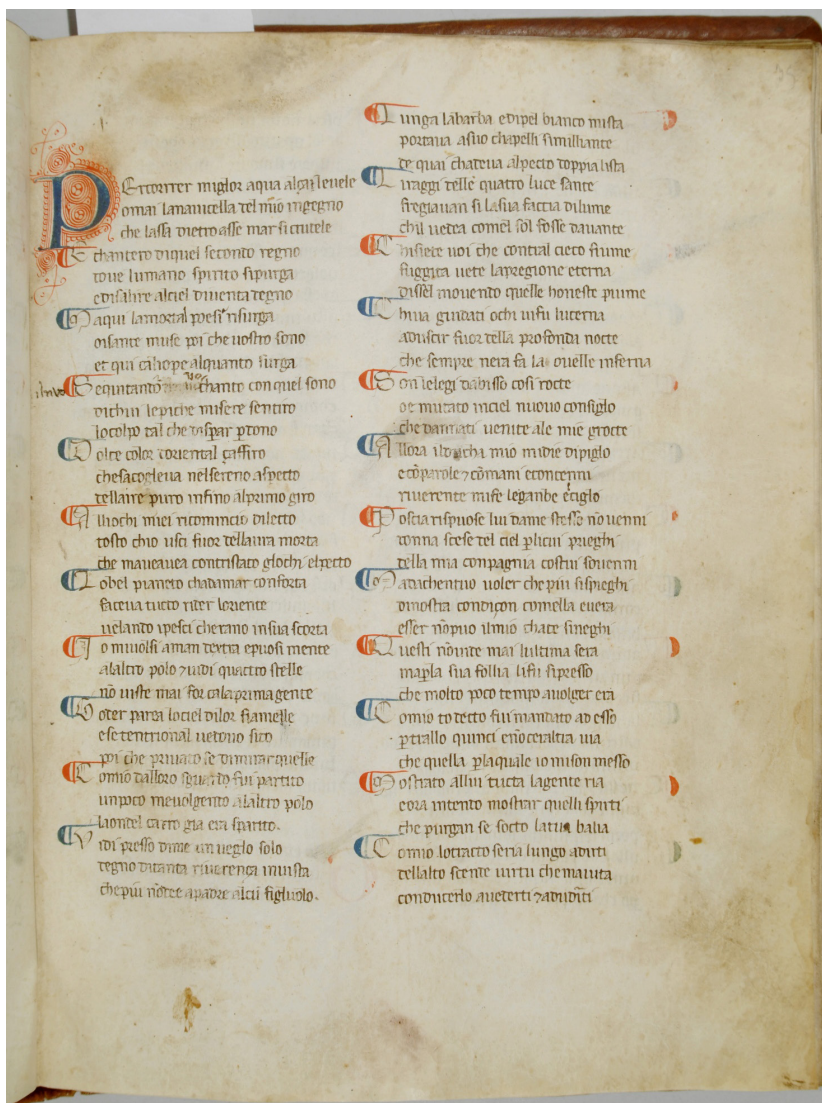 PEr correr miglor aqua alçar leuele
omai lanauicella del mio ingegno
che lassa dietro asse mar si crudele
E chantero diquel secondo regno
doue lumano spirito sipurga
edisalire alciel diuenta degno
Ma qui lamortal poesi risurga
osante muse poi che uostro sono
et qui caliope alquanto surga
Seguitando chanto con quel sono
dichui le piche misere sentiro
locolpo tal che dispar pdono
Dolce color doriental çaffiro
chesacoglieua nelsereno aspecto
dellaire puro infino alprimo giro
Alliochi miei ricomincio diletto
tosto chio usci fuor dellaura morta
che maueauea contristato glochi elpecto
Lobel pianeto chadamar conforta
faceua tucto rider loriente
uelando ipesci cherano insua scorta
Io miuolsi aman dextra epuosi mente
alaltro polo ⁊uidi quactro stelle
nō uiste mai for cala prima gente
Goder parea lociel dilor fiamelle
o septentrional uedouo sito
poi che priuato se dimirar quelle
Comio dalloro sguardo fui partito
unpoco meuolgendo alaltro polo
laondel carro gia era sparito.
Vidi presso dime un ueglo solo
degno ditanta riuerença inuista
chepiu nō dee apadre alcū figluolo.
Lunga labarba edipel bianco mista
portaua asuo chapelli simigliante
de quai chadeua alpecto doppia lista
Liraggi delle quatro luce sante
fregiauan si lasua faccia dilume
chil uedea comel sol fosse dauante
Chi siete uoi che contral cieco fiume
fuggita uete lapregione eterna
dissel mouendo quelle honeste piume
Chiua guidati ochi uifu lucerna
aduscir fuor della profonda nocte
che sempre nera fa la ualle inferna
Son lelegi dabisso cosi rocte
oe mutato inciel nuouo consiglo
che dannati uenite ale mie grocte
Allora ilducha mio midie dipiglo
e cōparole ⁊cōmani econcenni
riuerente mise legambe ēciglo
Poscia rispuose lui dame stesso nō uenni
donna scese del ciel plicui prieghi
della mia conpagnia costui souenni
Ma dachentuo uoler chepiu sispieghi
dinostra condiçon comella euera
esser nōpuo ilmio chate sineghi
Questi nōuide mai lultima sera
mapla sua follia lifu sipresso
che molto poco tempo auolger era
Comio to decto fui mandato ad esso
p trallo quinci enōceraltra uia
che quella plaquale io mison messo
Mostrato allui tucta lagente ria
eora intendo mostrar quelli spirti
che purgan se socto latua balia
Comio lotracto seria lungo adirti
dellalto scende uirtu chemaiuta
conducerlo auederti ⁊adudirti